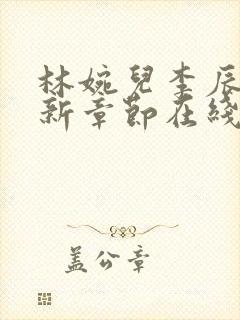 林婉兒李辰
新章節在綫
盖公章